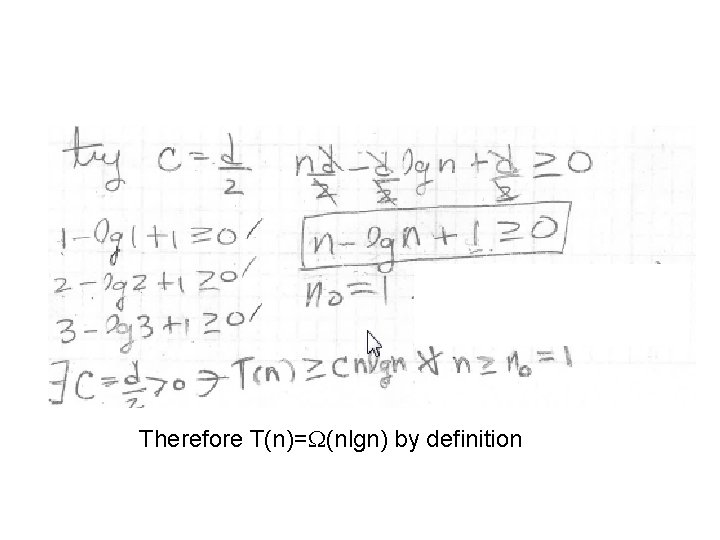 try c = d/2   nd/2 - d/2 lgn + d/2 ≥ 0
1 - lg1 + 1 ≥ 0 ✓   n - lgn + 1 ≥ 0
2 - lg2 + 1 ≥ 0 ✓   n₀ = 1.
3 - lg3 + 1 ≥ 0 ✓
∃ C = d/2 > 0 ∋ T(n) ≥ Cnlgn ∀ n ≥ n₀ = 1
Therefore T(n)=Ω(nlgn) by definition